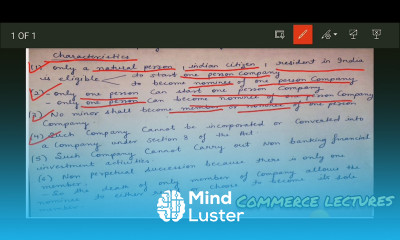 1 OF 1
Characteristics
(1) only a natural person, indian citizen, resident in India
is eligible to start one person company
to become nominee of one person company
(2) - only one person can start one person company
- only one person can become nominee of one person company
(3) No minor shall become member or nominee of one person
company
(4) Such Company cannot be incorporated or converted into
a company under section 8 of the Act
(5) Such company cannot carry out Non banking financial
investment activities.
(6) Non perpetual succession because there is only one
member.
- So the death of only member of company allows the
nominee to either or choose to become its sole
member
Mind
Luster
COMMERCE LECTURES